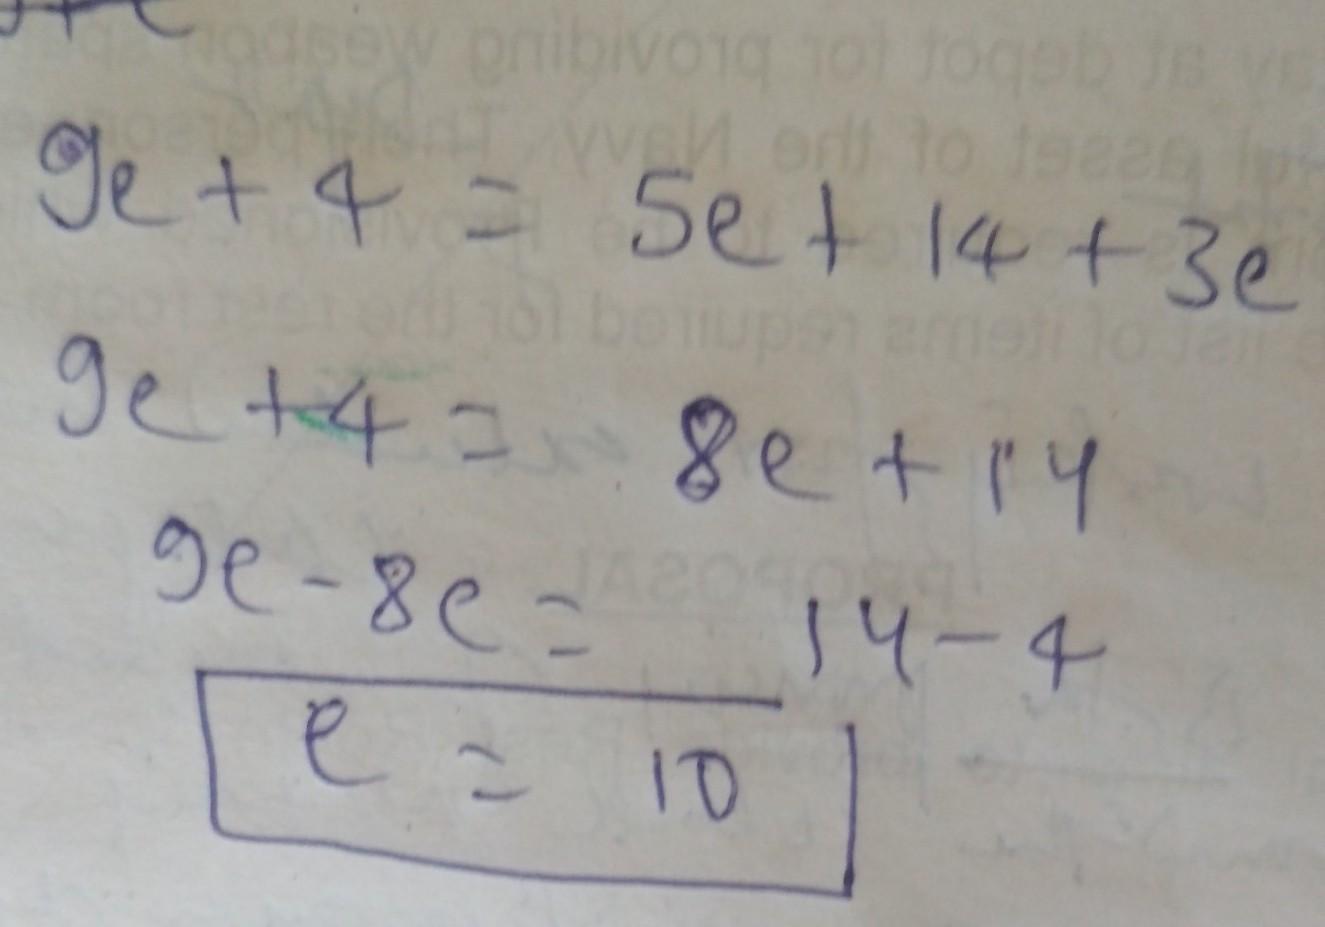 9e + 4 = 5e + 14 + 3e
9e + 4 = 8e + 14
9e - 8e = 14 - 4
e = 10